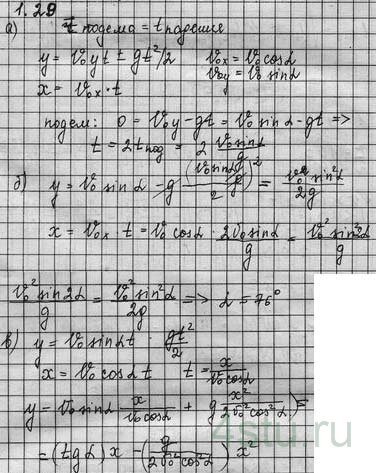 1.29
а) t подема = t падения
y = v₀yt ± gt²/2 v₀x = v₀cosα
v₀y = v₀ sinα
x = v₀x · t
подем: 0 = v₀y - gt = v₀ sinα - gt =>
t = 2tпод = 2 v₀sinα/g
б) y = v₀ sinα - g (v₀sinα/g)²/2 = v₀² sin²α/2g
x = v₀x · t = v₀ cosα · 2v₀sinα/g = v₀² sin2α/g
v₀² sin2α/g = v₀² sin²α/2g => α = 76°
в) y = v₀ sinαt · gt²/2
x = v₀ cosα t t = x/v₀cosα
y = v₀ sinα x/v₀cosα + g x²/2v₀²cos²α) =
= (tgα) x - (g/2v₀²cos²α) x²
4stu.ru